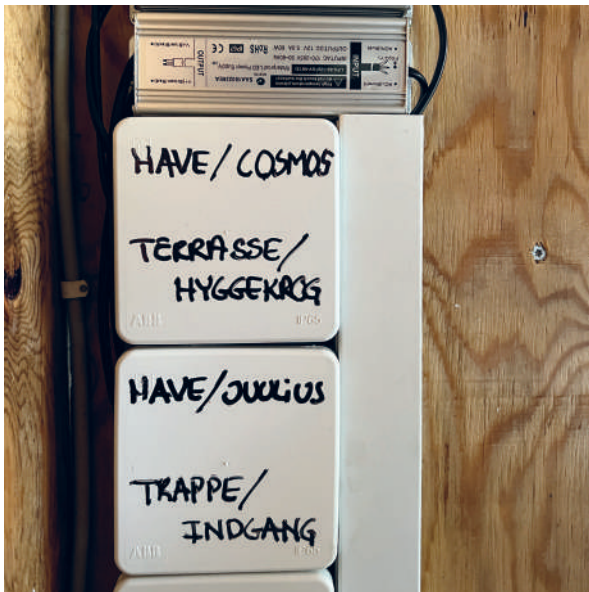 OUTPUT
INPUT
HAVE/COSMOS
TERRASSE/
HYGGEKROG
ABB IP65
HAVE/JUULIUS
TRAPPE/
INDGANG
ABB IP65